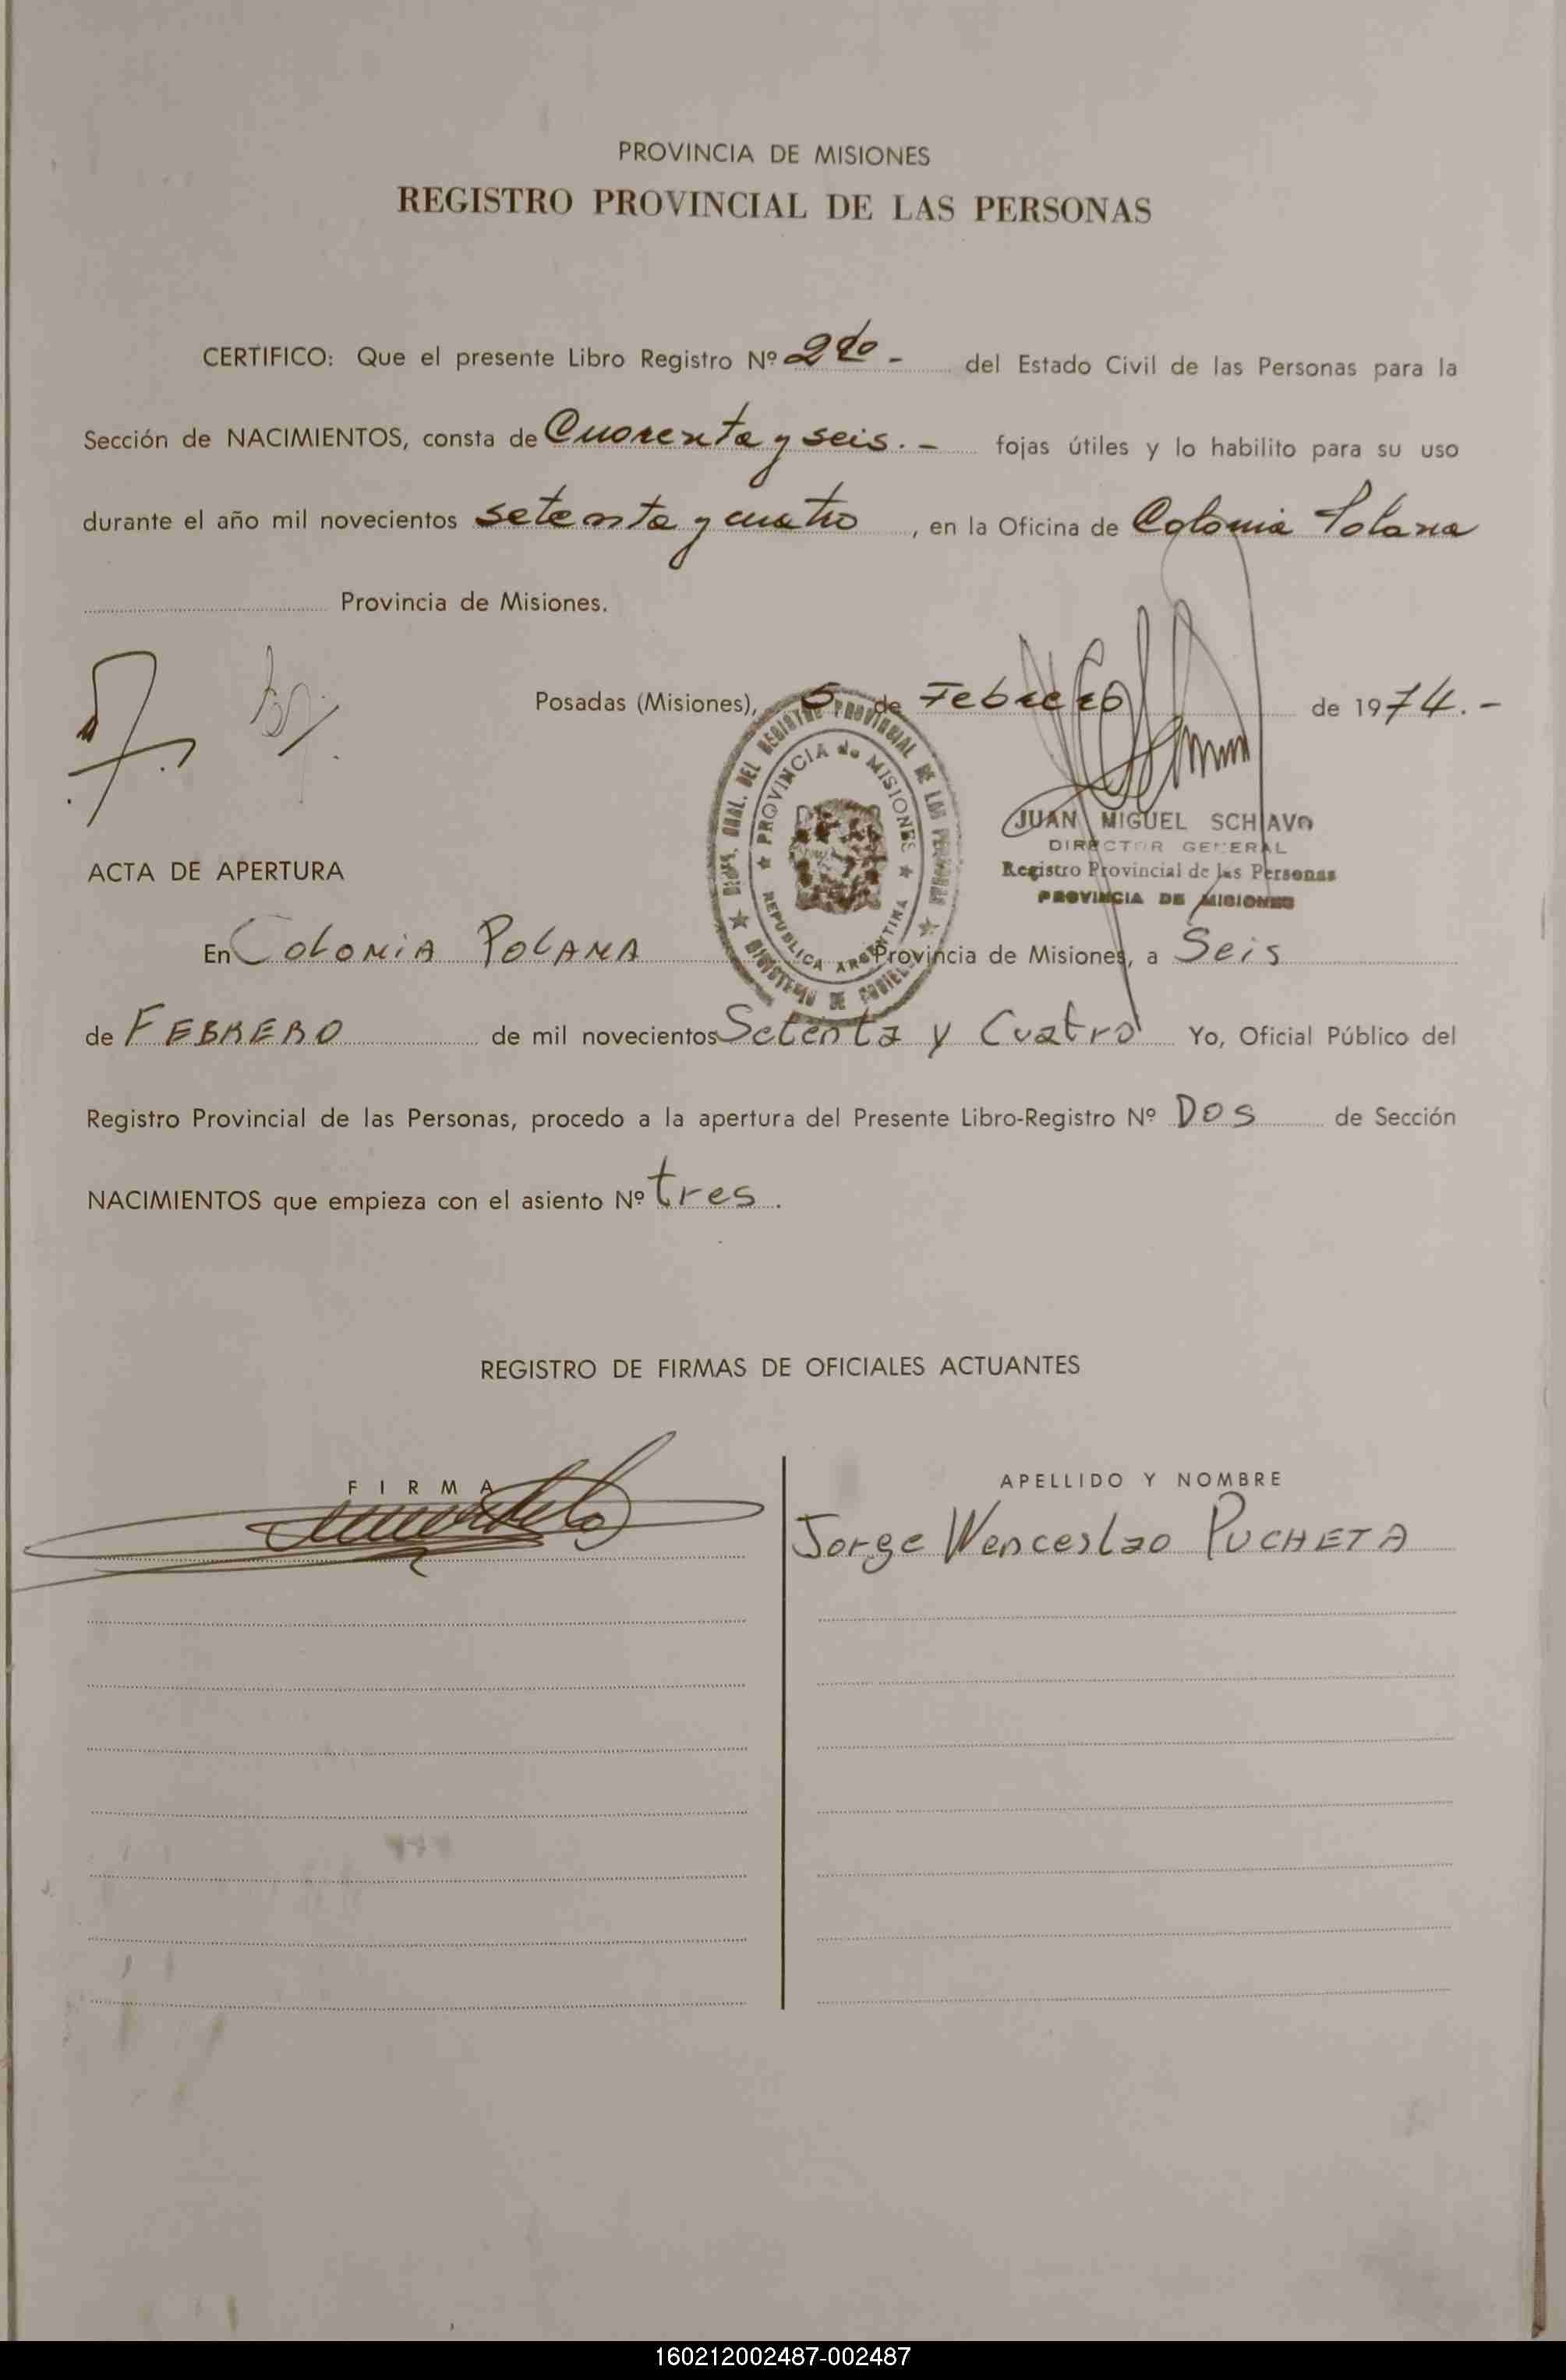 PROVINCIA DE MISIONES
REGISTRO PROVINCIAL DE LAS PERSONAS
CERTIFICO: Que el presente Libro Registro Nº 2do - del Estado Civil de las Personas para la
Sección de NACIMIENTOS, consta de Cuarenta y seis. - fojas útiles y lo habilito para su uso
durante el año mil novecientos setenta y cuatro, en la Oficina de Colonia Polana
Provincia de Misiones.
Posadas (Misiones), 5 de Febrero de 1974. -
DIREC. GRAL. DEL REGISTRO PROVINCIAL DE LAS PERSONAS
PROVINCIA de MISIONES
REPUBLICA ARGENTINA
MINISTERIO DE GOBIERNO
JUAN MIGUEL SCHIAVO
DIRECTOR GENERAL
Registro Provincial de las Personas
PROVINCIA DE MISIONES
ACTA DE APERTURA
En COLONIA POLANA Provincia de Misiones, a Seis
de FEBRERO de mil novecientos Setenta y Cuatro Yo, Oficial Público del
Registro Provincial de las Personas, procedo a la apertura del Presente Libro-Registro Nº DOS de Sección
NACIMIENTOS que empieza con el asiento Nº tres.
REGISTRO DE FIRMAS DE OFICIALES ACTUANTES
FIRMA
APELLIDO Y NOMBRE
Jorge Wenceslao PUCHETA
160212002487-002487